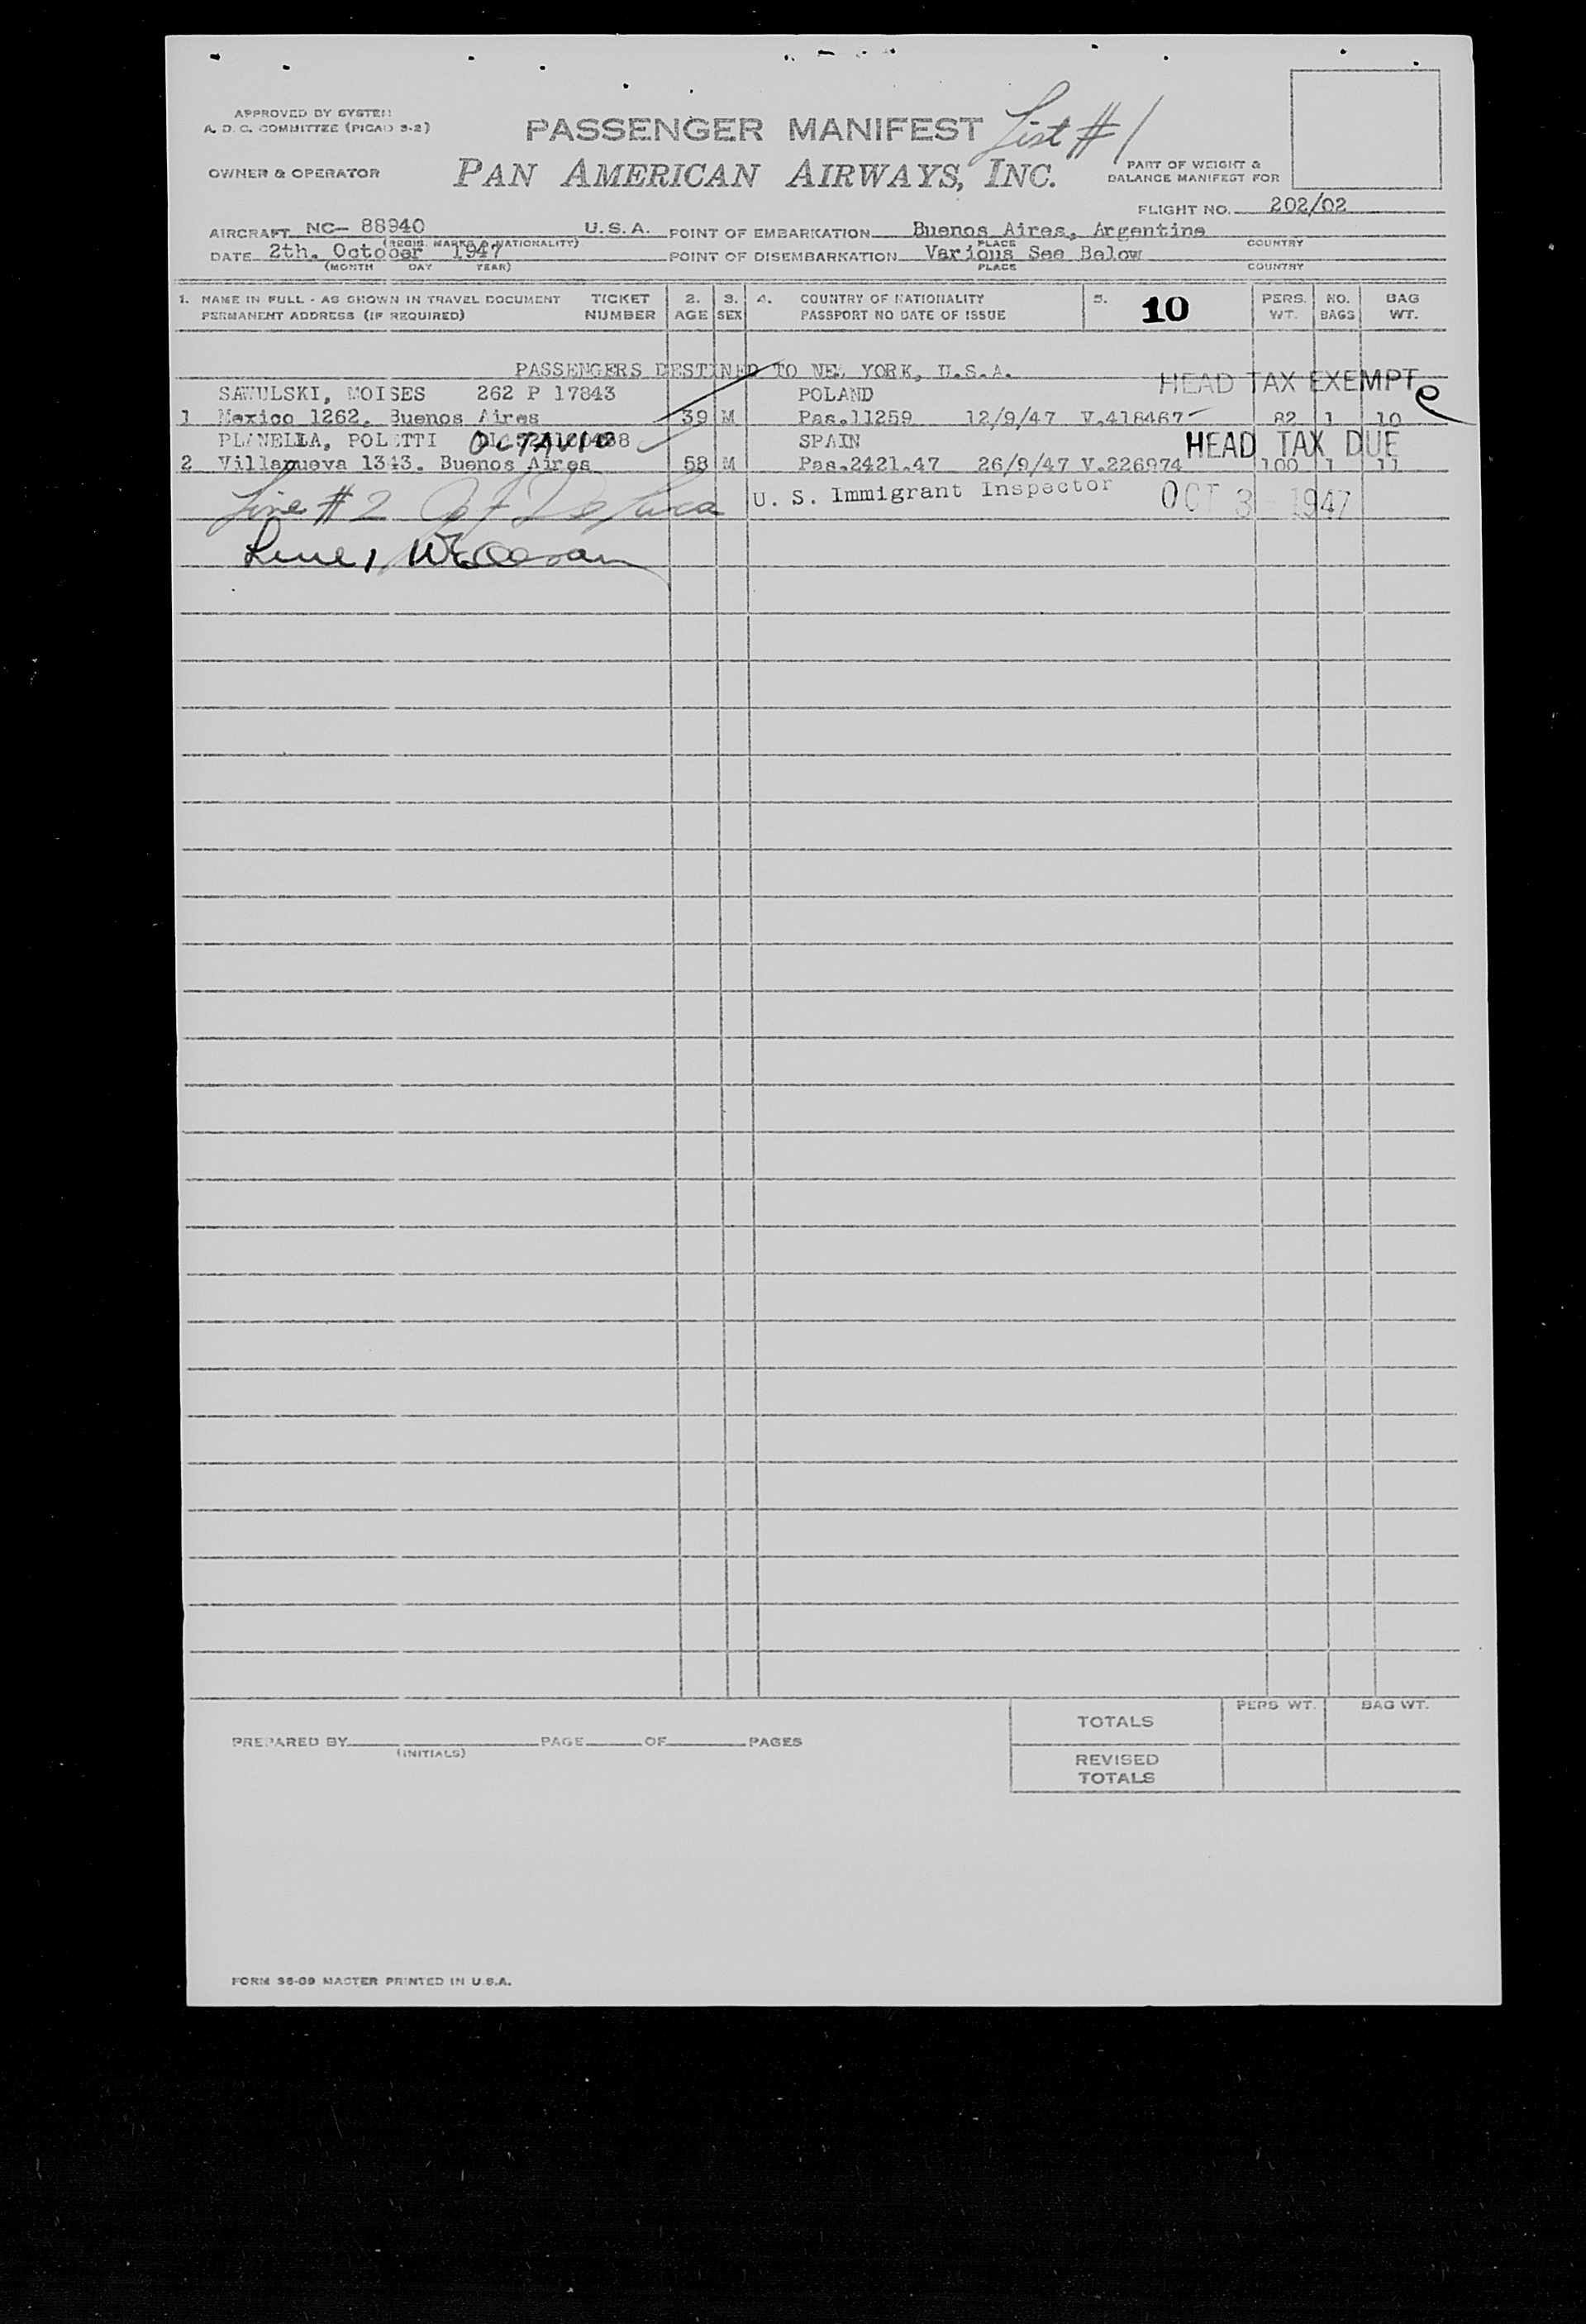 APPROVED BY SYSTEM
A. D. C. COMMITTEE (PICAO 3-2)
PASSENGER MANIFEST List # 1
OWNER & OPERATOR
PAN AMERICAN AIRWAYS, INC.
PART OF WEIGHT &
BALANCE MANIFEST FOR
FLIGHT NO. 202/02
AIRCRAFT NC- 88940 U. S. A. POINT OF EMBARKATION Buenos Aires, Argentina
(REGIS. MARKS & NATIONALITY) PLACE COUNTRY
DATE 2th. October 1947 POINT OF DISEMBARKATION Various See Below
(MONTH DAY YEAR) PLACE COUNTRY
1. NAME IN FULL - AS SHOWN IN TRAVEL DOCUMENT TICKET 2. 3. 4. COUNTRY OF NATIONALITY 5. 10 PERS. NO. BAG
PERMANENT ADDRESS (IF REQUIRED) NUMBER AGE SEX PASSPORT NO DATE OF ISSUE WT. BAGS WT.
PASSENGERS DESTINED TO NEW YORK, U.S.A.
SAWULSKI, MOISES 262 P 17843 POLAND HEAD TAX EXEMPT
1 Mexico 1262. Buenos Aires 39 M Pas.11259 12/9/47 V.418467 82 1 10
PLANELLA, POLETTI OCTAVIO SPAIN HEAD TAX DUE
2 Villanueva 1343. Buenos Aires 58 M Pas.2421.47 26/9/47 V.226974 100 1 11
Line # 2 U. S. Immigrant Inspector OCT 3 - 1947
Line 1
TOTALS PERS WT. BAG WT.
PREPARED BY PAGE OF PAGES
(INITIALS)
REVISED
TOTALS
FORM 36-09 MASTER PRINTED IN U.S.A.